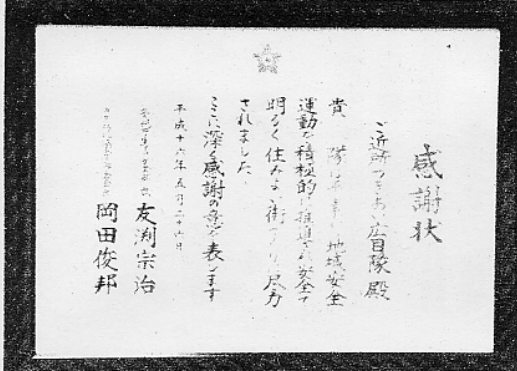 感謝状
ご近所つきあい広目隊 殿
貴 隊は 地域安全
運動を積極的に推進され安全で
明るく住みよい街づくりに尽力
されました
ここに深く感謝の意を表します
平成十六年五月二十六日
友渕宗治
岡田俊邦